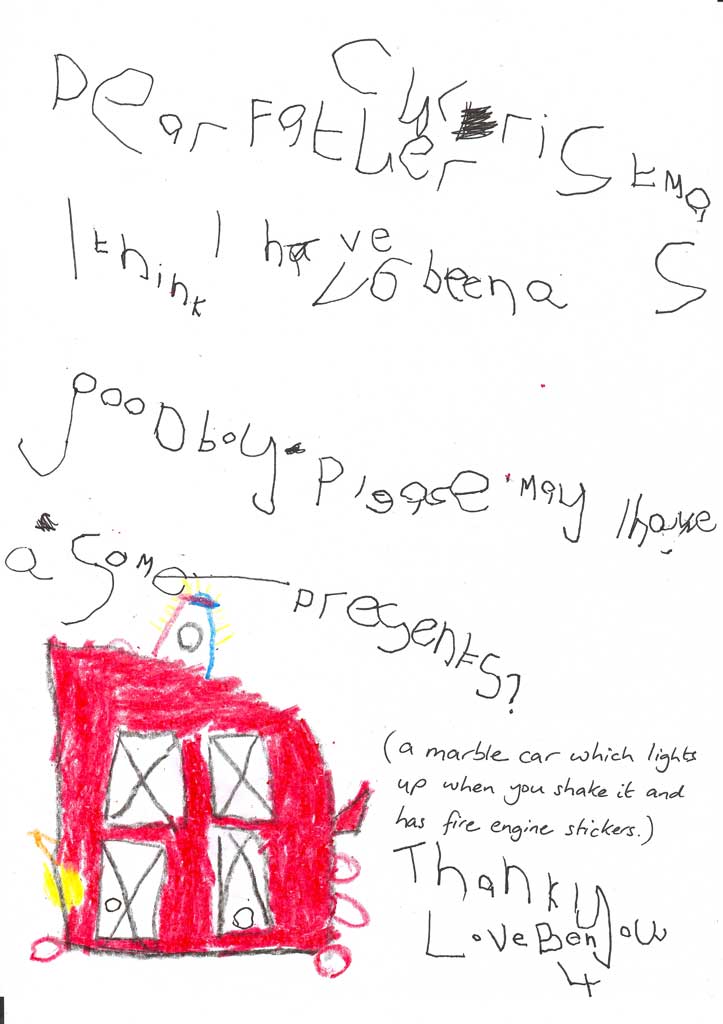 Dear Father Christmas
I think I have been a
good boy. Please may I have
a some presents?
(a marble car which lights
up when you shake it and
has fire engine stickers.)
Thank you
Love Ben
4